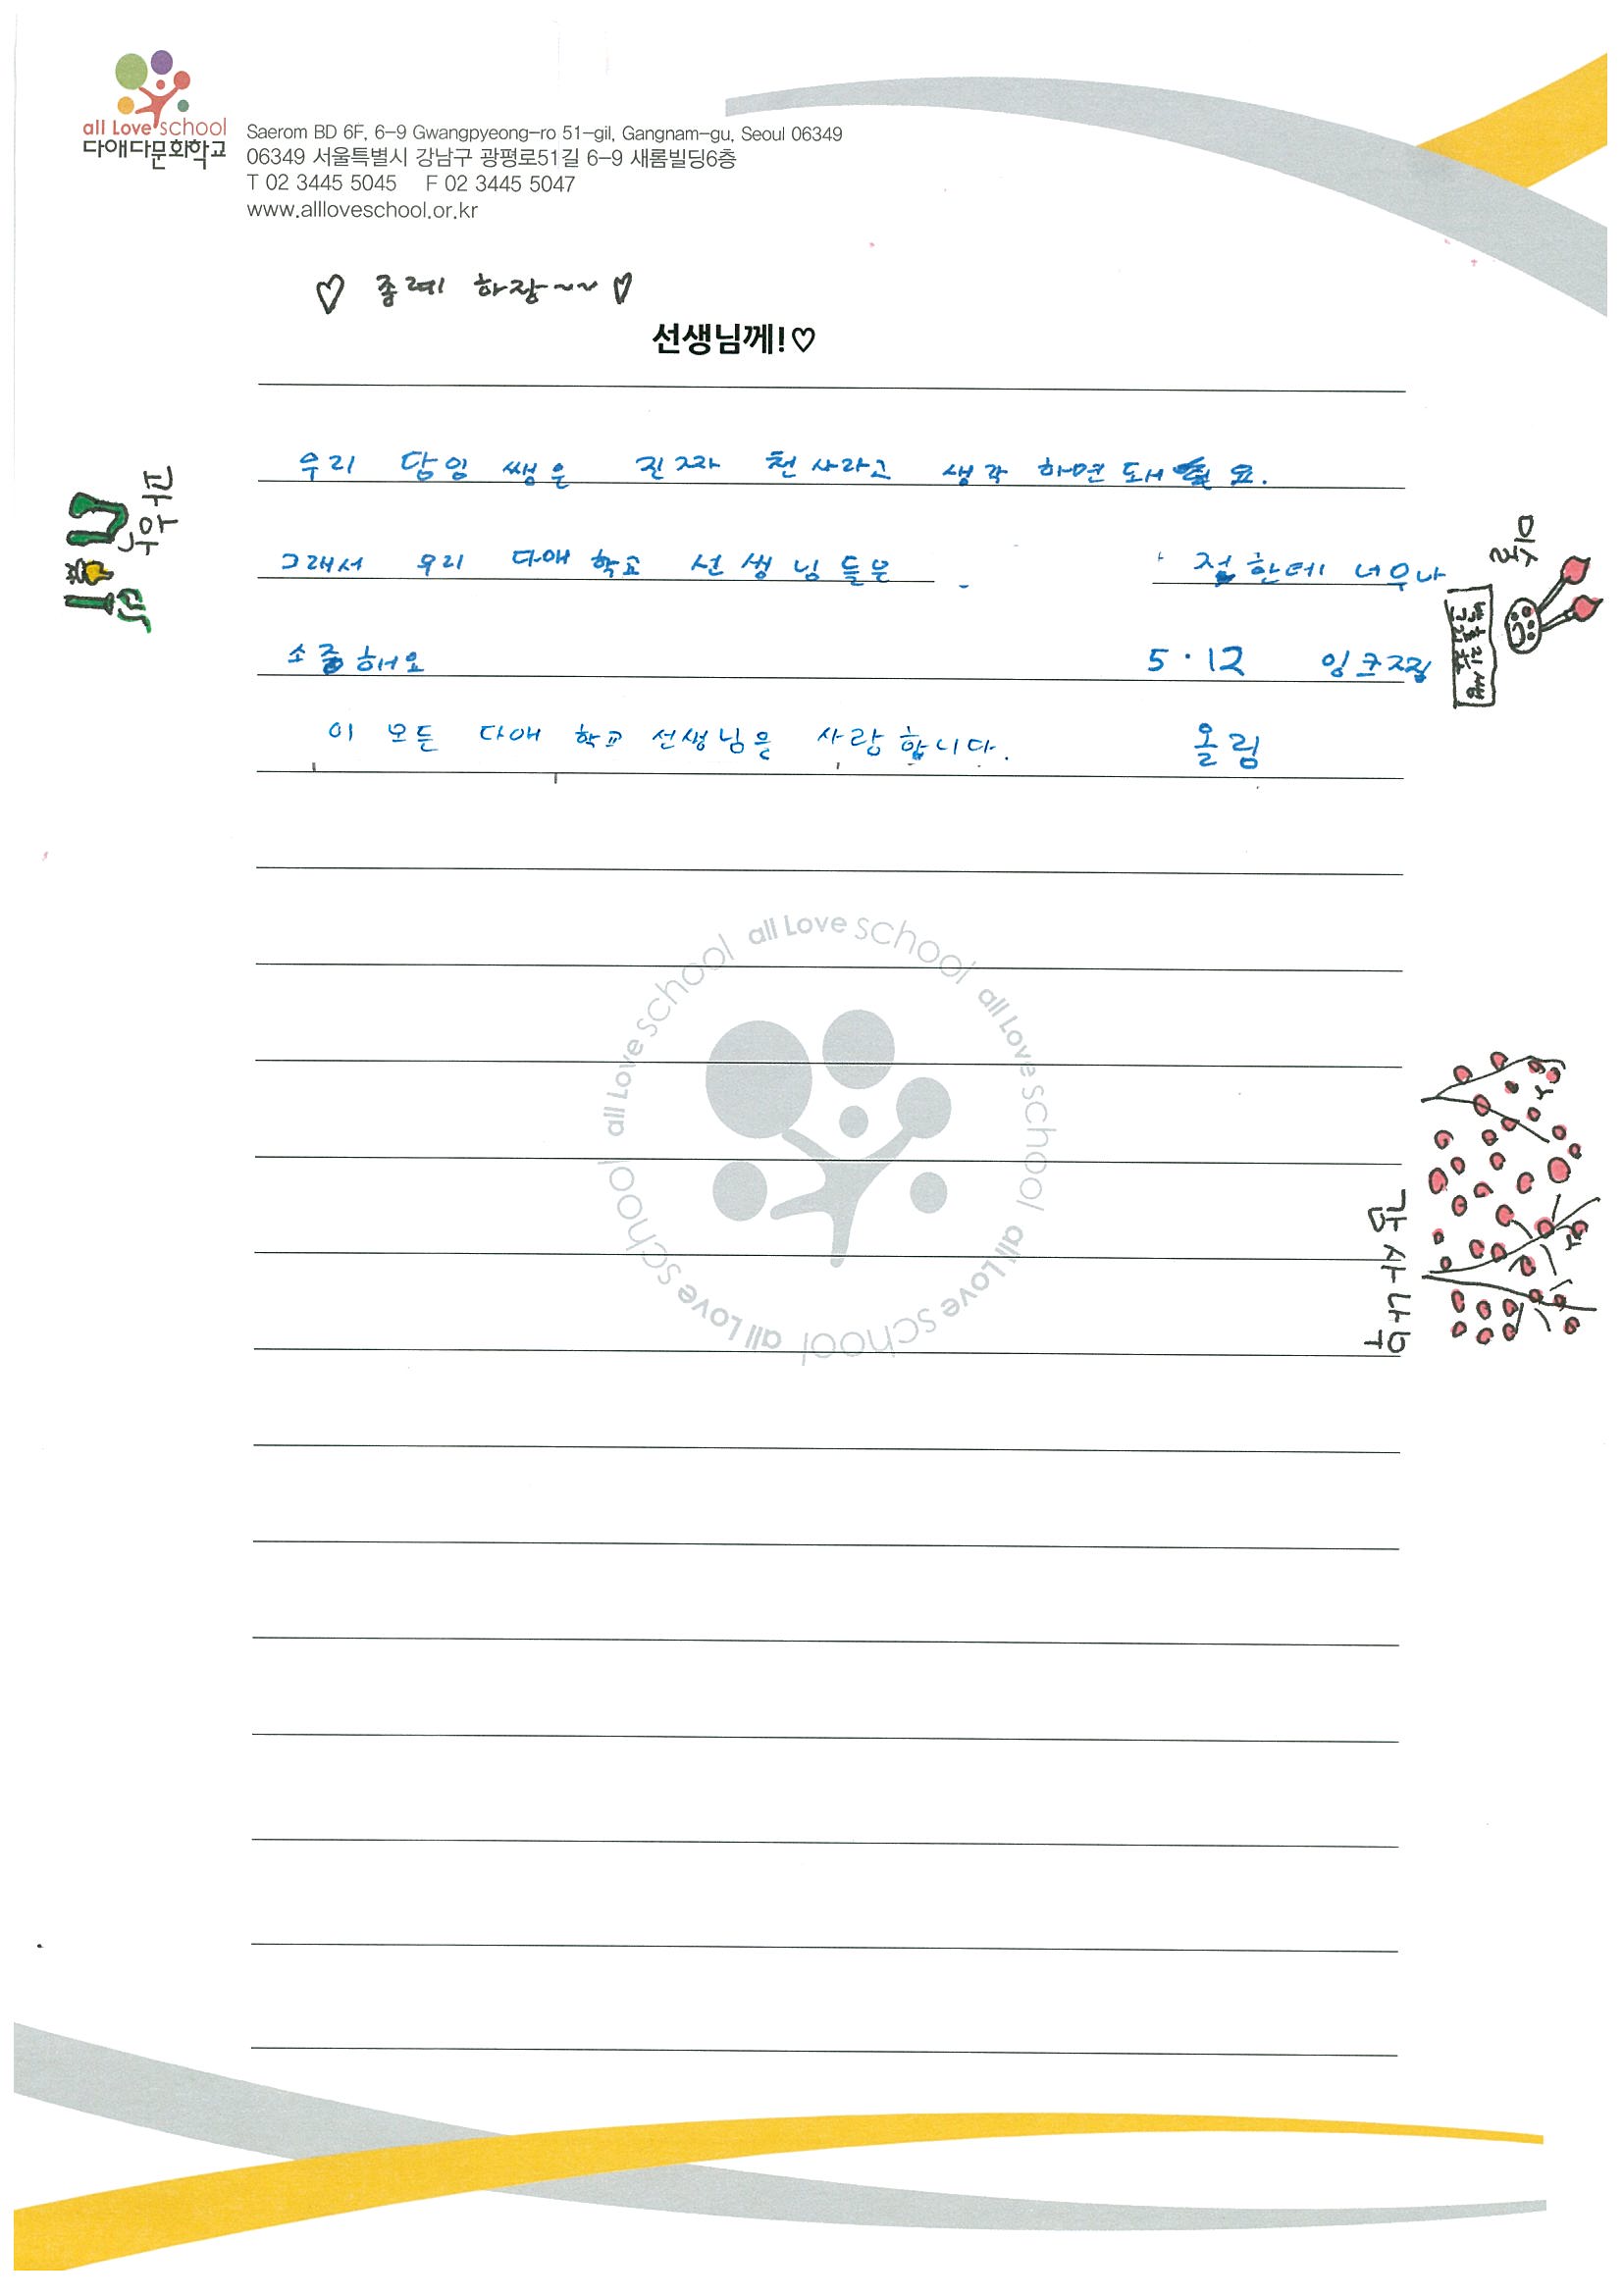 all Love school
다애다문화학교
Saerom BD 6F, 6-9 Gwangpyeong-ro 51-gil, Gangnam-gu, Seoul 06349
06349 서울특별시 강남구 광평로51길 6-9 새롬빌딩6층
T 02 3445 5045 F 02 3445 5047
www.allloveschool.or.kr
♡ 종례 하장~~ ♡
선생님께!♡
우리 담임 쌩은 진짜 천사라고 생각 하면 도ㅐ요.
그래서 우리 다애 학교 선생님들은 절한테 너우나
소중해요 5·12 잉크찜
이 모든 다애 학교 선생님은 사랑합니다. 올림
미술
감사나무
all Love school all Love school all Love school all Love school all Love school